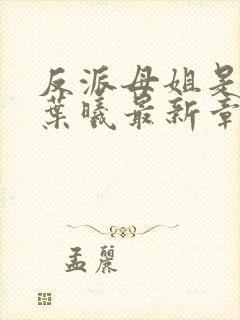 反派母姐是
葉曦最新章
孟麗